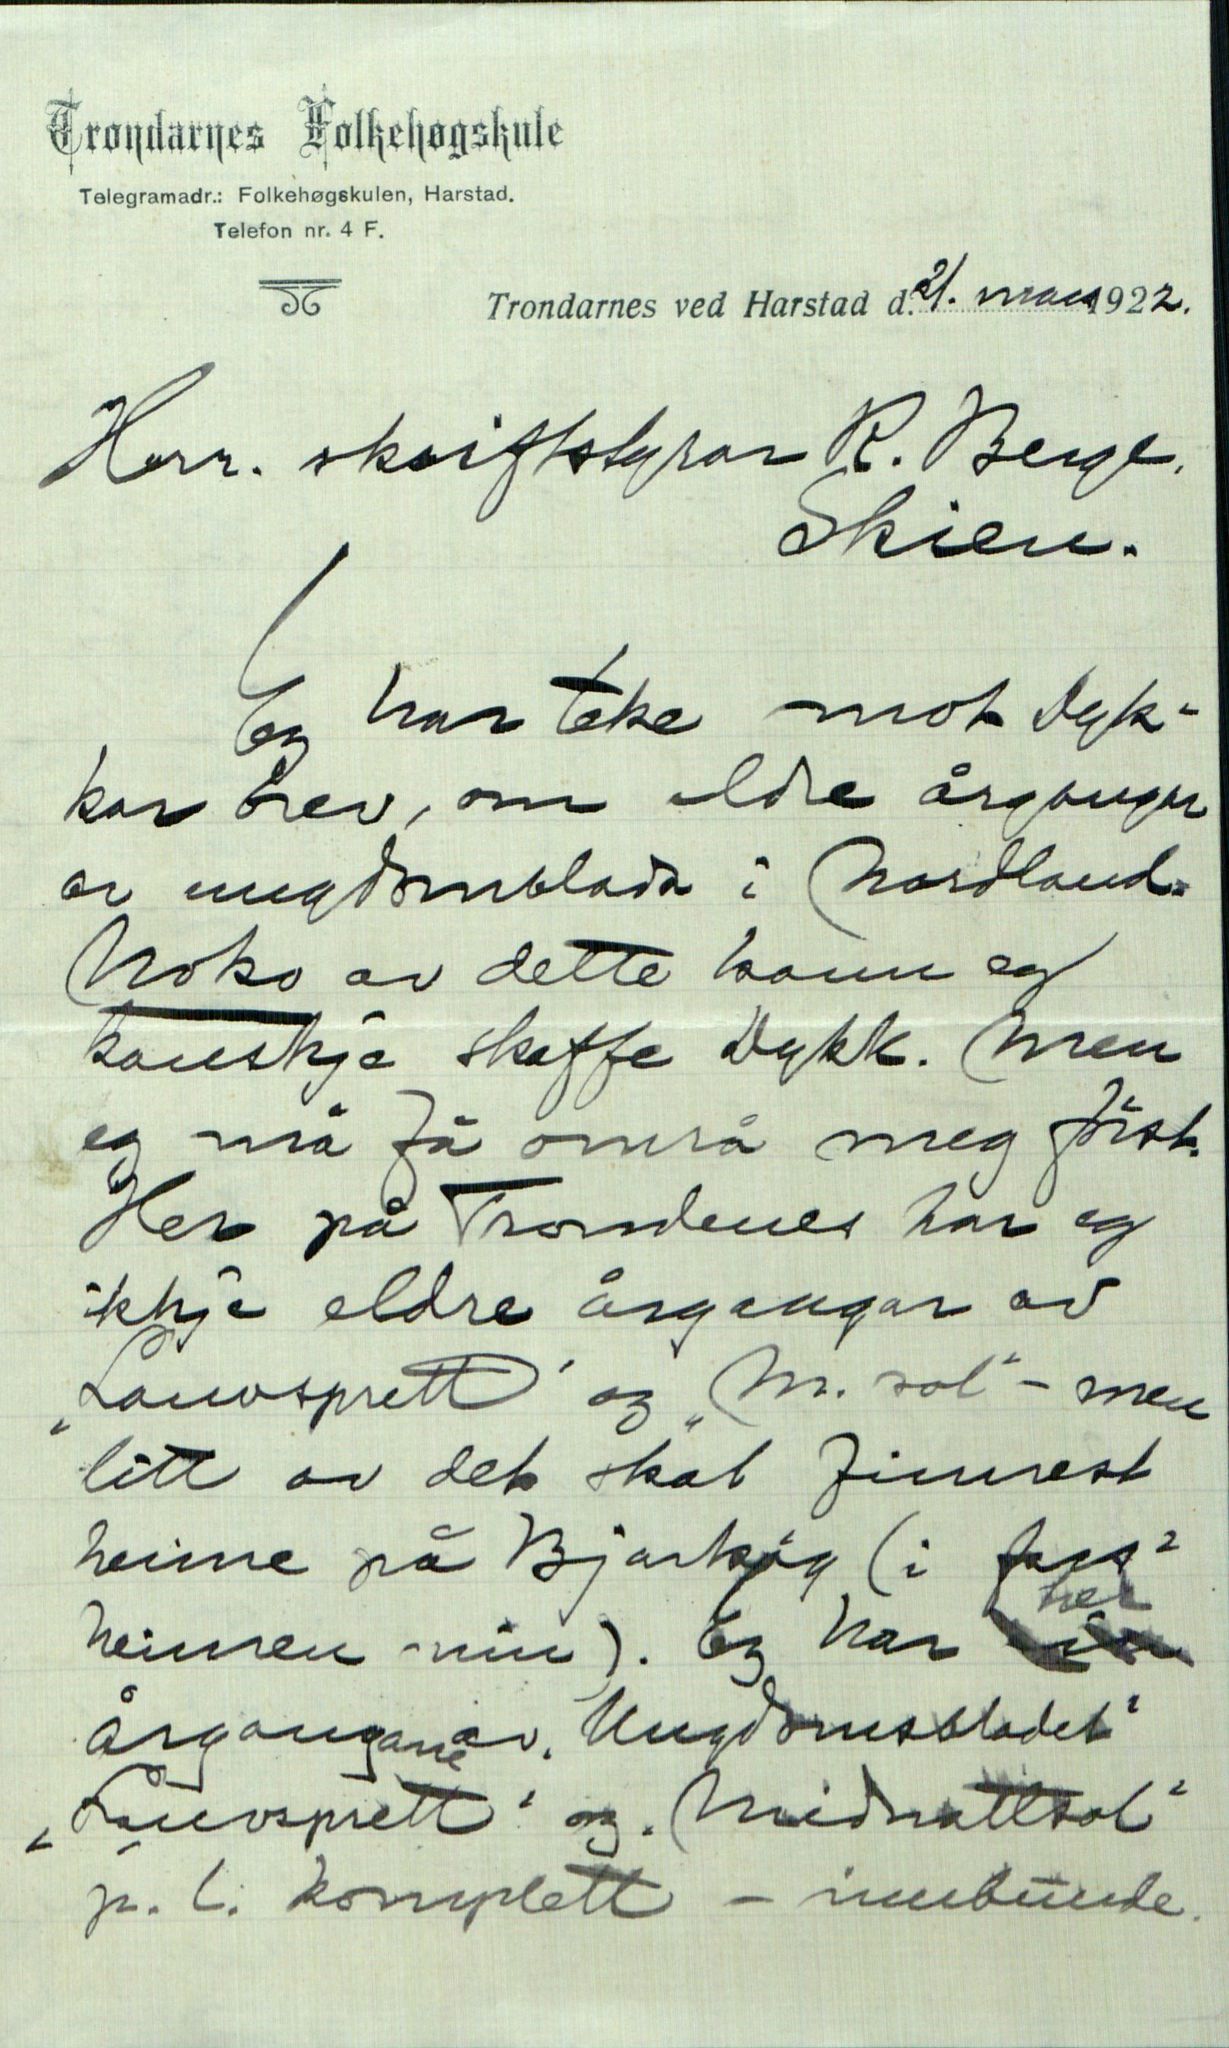 Trondarnes Folkehøgskule
Telegramadr.: Folkehøgskulen, Harstad.
Telefon nr. 4 F.
Trondarnes ved Harstad d. 21. mars 1922.
Herr. skriftstyrar R. Berge.
Skien.
Eg har teke mot Dyk-
kar brev, om eldre årgangar
av ungdomsblada i Nordland.
Noko av dette kann eg
kanskje skaffe Dykk. Men
eg må få områ meg först.
Her på Trondenes har eg
ikkje eldre årgangar av
„Lauvsprett" og „M. sol" – men
litt av det skal finnest
heime på Bjarkøy (i fars-
heimen min). Eg har her
årgangane av „Ungdomsbladet"
„Lauvsprett" og „Midnattsol"
p. l. komplett – innbunde.